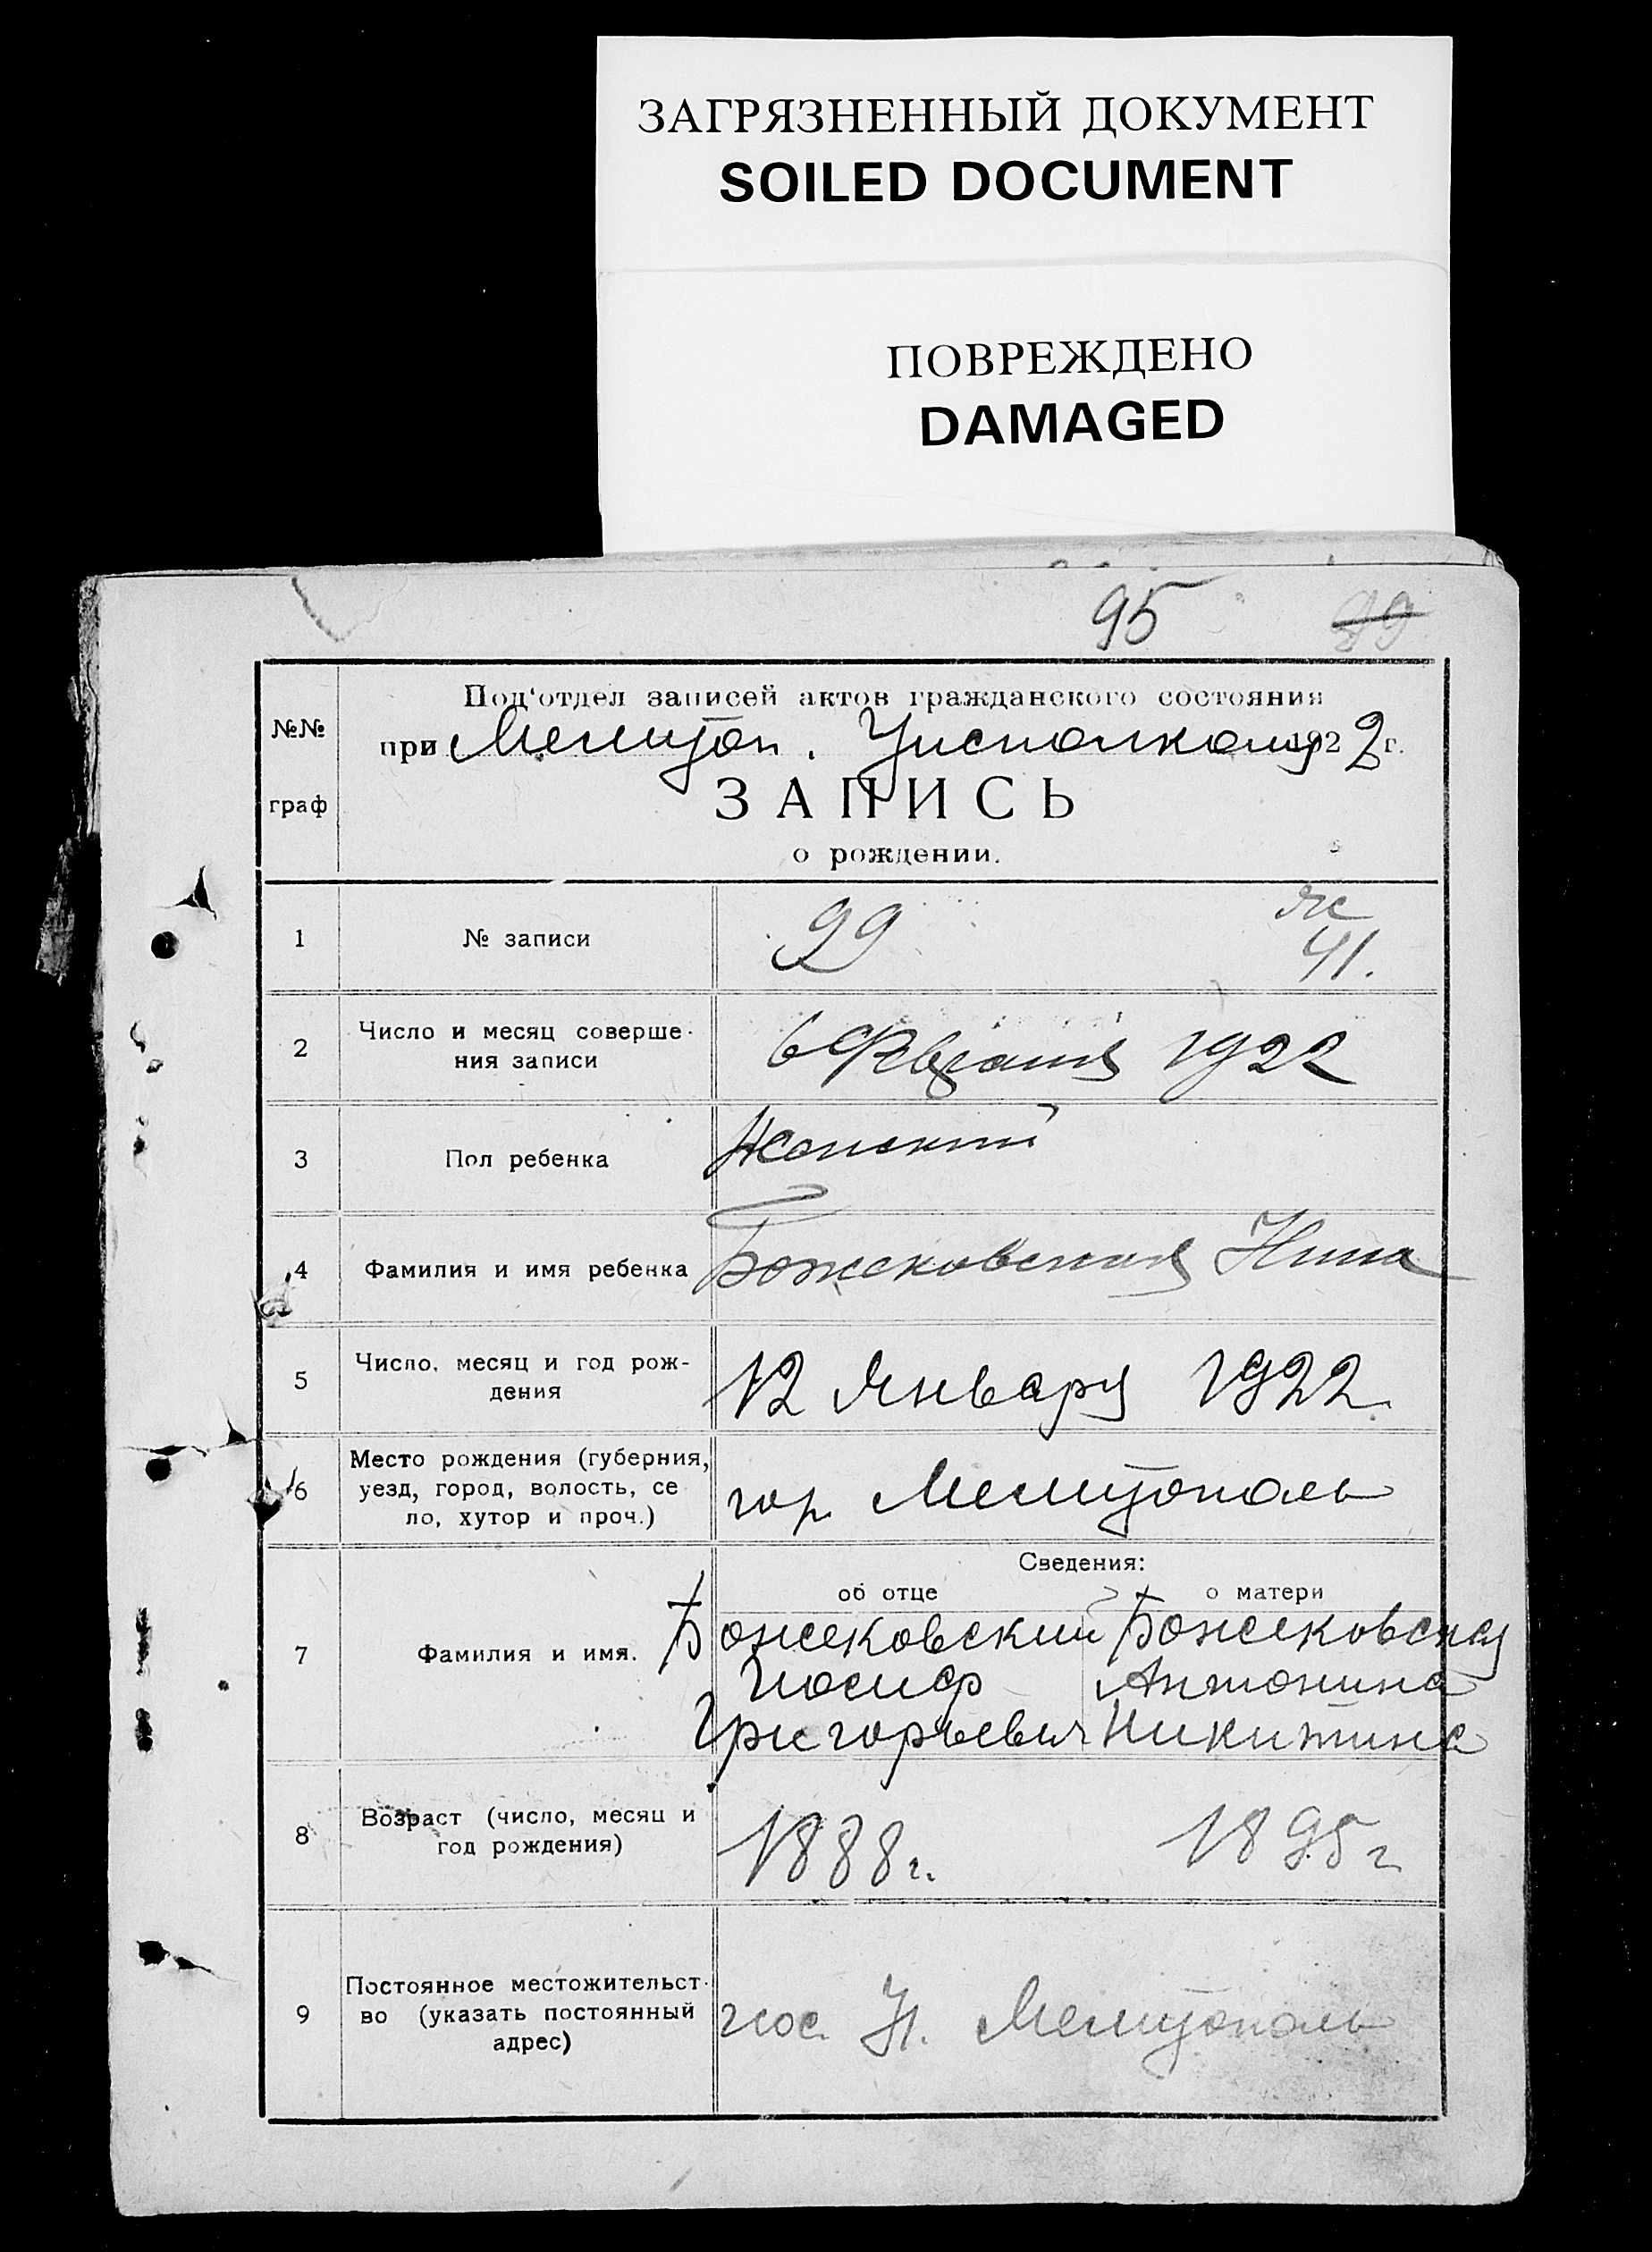 ЗАГРЯЗНЕННЫЙ ДОКУМЕНТ
SOILED DOCUMENT
ПОВРЕЖДЕНО
DAMAGED
95 89
Под'отдел записей актов гражданского состояния
№№
при Мелитоп. Уисполкому 1922 г.
граф
ЗАПИСЬ
о рождении.
1 № записи 99 41.
2 Число и месяц соверше-
ния записи
6 Февраля 1922
3 Пол ребенка Женский
4 Фамилия и имя ребенка Божековская Нина
5 Число, месяц и год рож-
дения
12 Январу 1922.
6 Место рождения (губерния,
уезд, город, волость, се
ло, хутор и проч.)
гор Мелитополь
Сведения:
об отце о матери
7 Фамилия и имя.
Божековский Божековская
Иосиф Антонина
Григорьевич Никитина
8 Возраст (число, месяц и
год рождения)
1888 г. 1895 г
9 Постоянное местожительст-
во (указать постоянный
адрес)
Н. Мелитополь